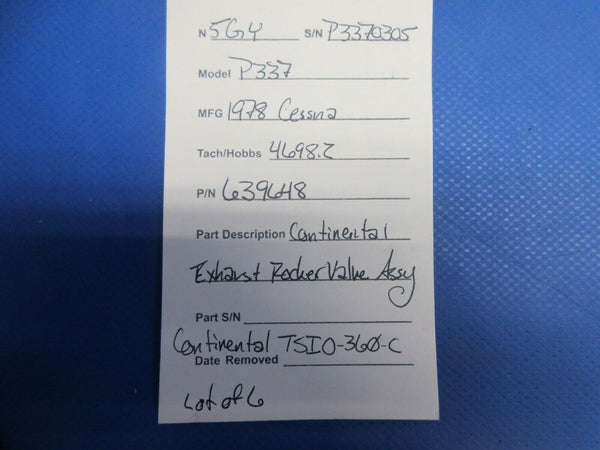 N 5GY S/N P3370305
Model P337
MFG 1978 Cessna
Tach/Hobbs 4698.2
P/N 639648
Part Description Continental
Exhaust Rocker Valve Assy
Part S/N
Continental TSIO-360-C
Date Removed
Lot of 6